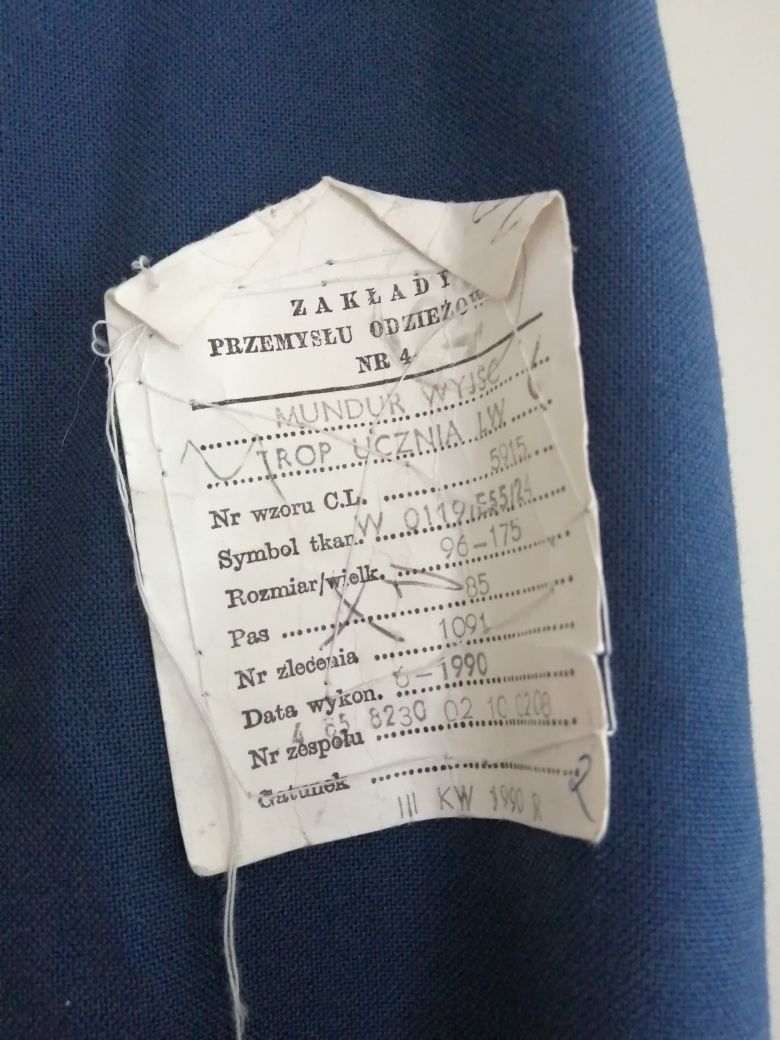 ZAKŁADY
PRZEMYSŁU ODZIEŻOW
NR 4
MUNDUR WYJŚC
TROP UCZNIA LW
Nr wzoru C.L. 5915
Symbol tkan. W 0119/E55/24
Rozmiar/wielk. 96-175
Pas 85
Nr zlecenia 1091
Data wykon. 6-1990
Nr zespołu 4 85 8230 02 10 0208
Gatunek
III KW 1990 R